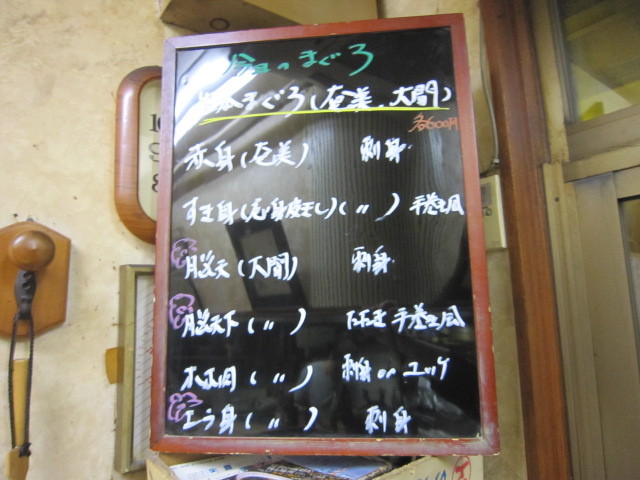 今日のまぐろ
まぐろ(奄美、大間)
各600円
赤身(奄美) 刺身
すき身( 〃 ) 手巻き風
脳天(大間) 刺身
脳天下( 〃 ) たたき 手巻き風
ホホ肉( 〃 ) 刺身 or ユッケ
エラ身( 〃 ) 刺身